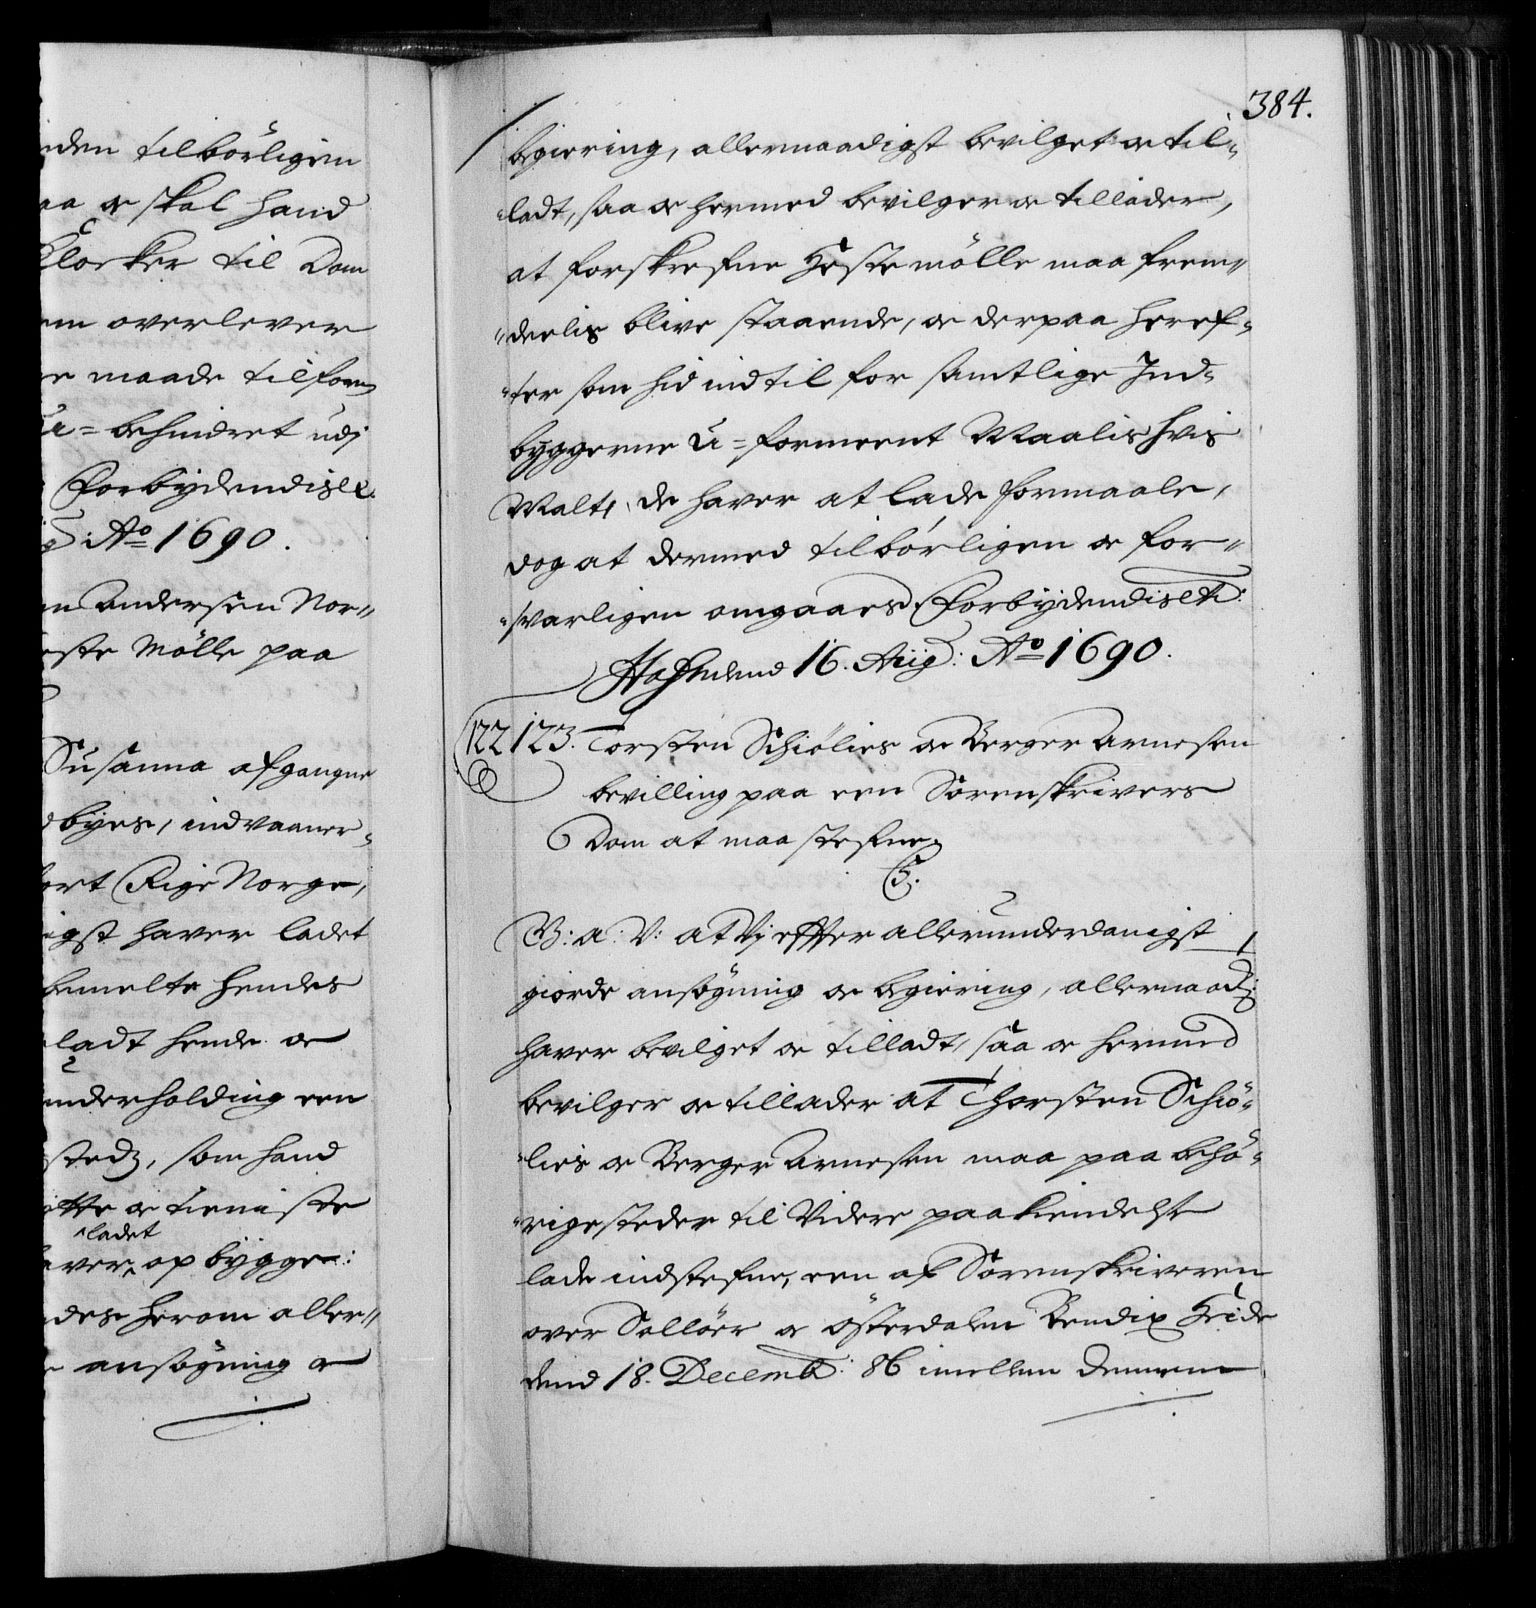 iden tilbörligen
aa og skal hand
Clocker til Dom
em overlever
re maade tilforn
u=behindret udj
Forbydendis etc.
g: Ao 1690.
n Andersen Nor„
este Mölle paa
Susanna afgangne
byes, indvaaner„
ort Rige Norge,
igst haver ladet
bemelte hendes
ladt hende og
underholding een
stedz, som hand
tte og tieniste
ladet
aver op bygge:
des herom aller„
e ansøgning og
384.
begiering, allernaadigst bevilget og til„
ladt, saa og hermed bevilger og tillader,
at forskrefne Heste mölle maa frem„
„deelis blive staaende, og derpaa heref„
„ter som hid indtil for samtlige Ind„
byggerne u=formeent Maalis hvis
Malt, de haver at lade formaale,
dog at dermed tilbörligen og for„
„svarligen omgaaes, Forbydendis etc:
Hafn dend 16. Aug: Ao 1690.
122 123. Torsten Schiølies og Berger Arnesen
bevilling paa een Sorenskrivers
Dom at maa stefne
C5.
G: a: V: at Vj effter allerunderdanigst
giorde ansøgning og begiering, allernaad:
haver bevilget og tilladt, saa og hermed
bevilger og tillader at Thorsten Schiö„
„lies og Berger Arnesen maa paa behö„
„rige steder til Videre paakiendelse
lade indstefne, een af Sorenskriveren
over Solløer og Österdalen Bendix Heide
dend 18. Decemb: 86 imellem dennem